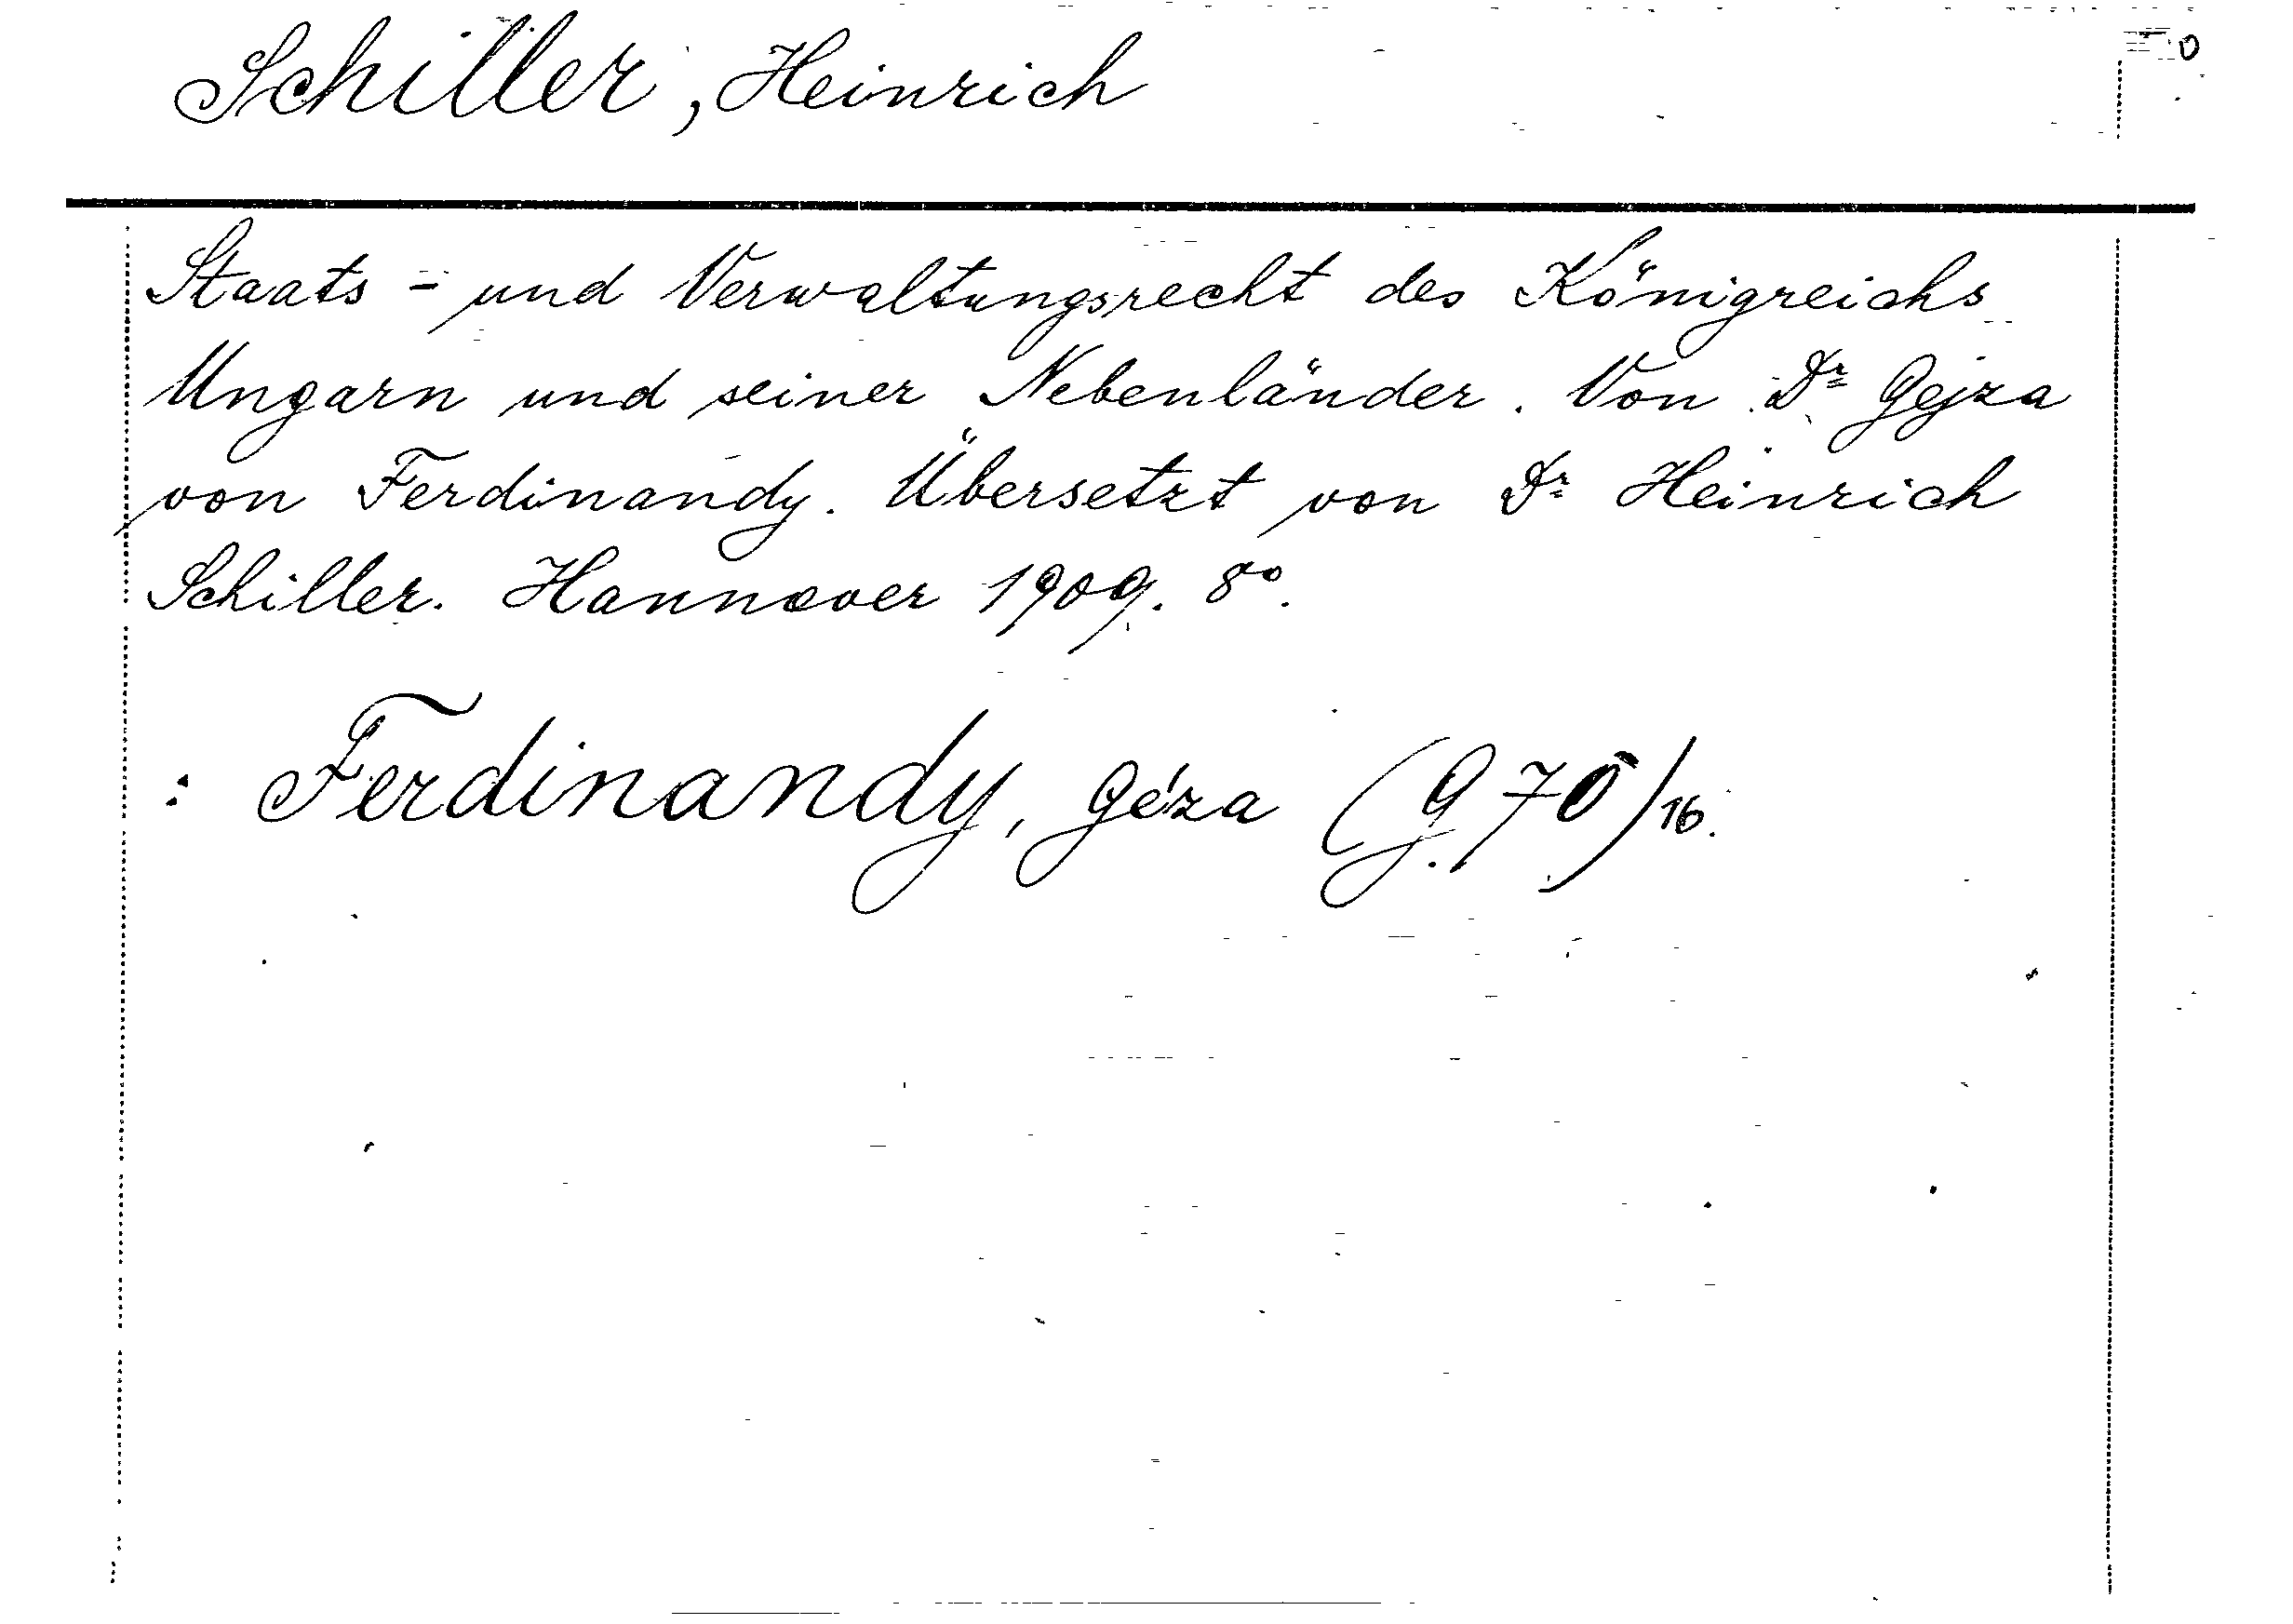 Schiller, Heinrich
Staats- und Verwaltungsrecht des Königreichs
Ungarn und seiner Nebenländer. Von Dr Gejza
von Ferdinandy. Übersetzt von Dr Heinrich
Schiller. Hannover 1909. 8º.
: Ferdinandy, Géza (G. 70)/16.